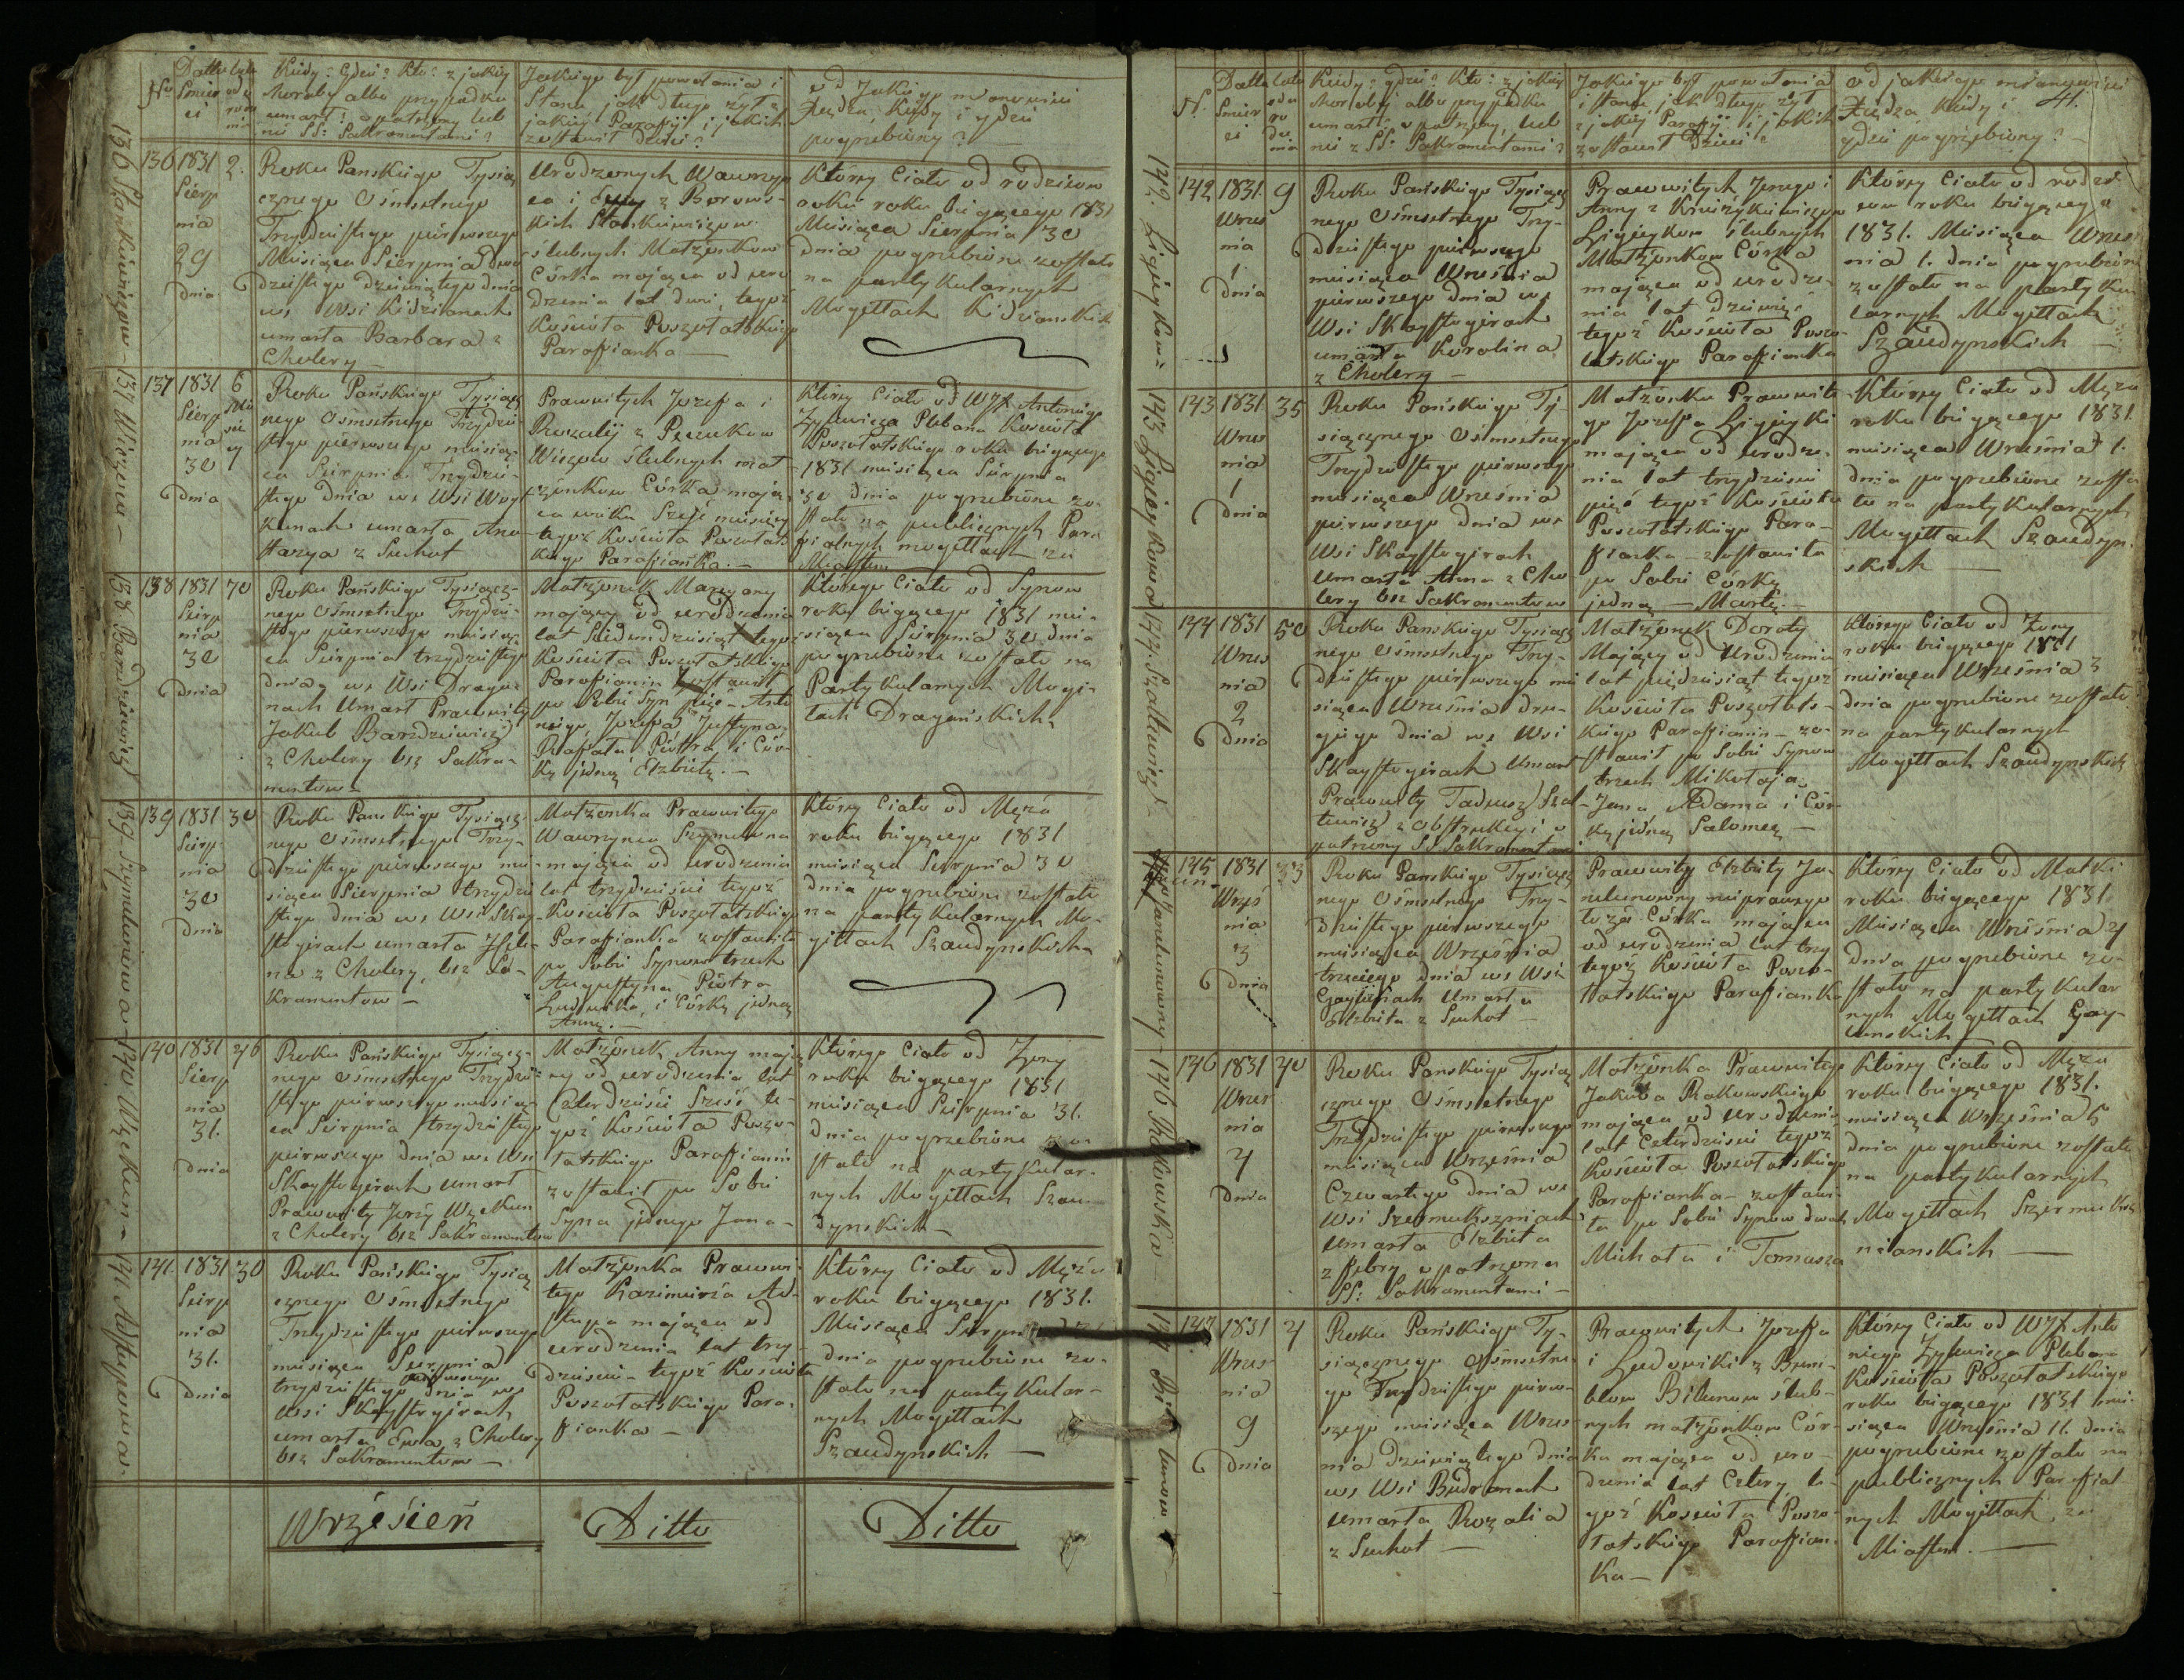 No
Datta Smier ci
Kiedy? Gdzie? Kto? z jakiey
choroby albo przypadku
umarł? opatrzony lub
nie SS: Sakramentami?
Jakiego był powołania i
Stanu jak długo żył z
jakiey Parafii i jakich
zostawił Dzieci?
od Jakiego mianowicie
Xiędza, Kiedy i gdzie
pogrzebiony?
136
1831
Sierp
nia
29
dnia
2.
Roku Panskiego Tysiąc
cznego Osmsetnego
Trzydziestego pierwszego
Miesiąca Sierpnia Dwu
dziestego dziewiątego dnia
we Wsi Kidzianach
umarła Barbara z
Cholery
Urodzonych Wawrzyn
ca i Ewy z Borows-
kich Stankiewiczow
slubnych Małżonkow
Córka maiąca od uro
dzenia lat dwie, tegoż
Kościoła Poszołatskiego
Parafianka —
Którey Ciało od rodzicow
roku bieżącego 1831
Miesiąca Sierpnia 30
dnia pogrzebione zostało
na partykularnych
Mogiłłach Kidzianskich
137
1831
Sierp
nia
30
dnia
6
Mie
się
cy
Roku Pańskiego Tysiącz
nego Osmsetnego Trzydzie
stego pierwszego miesią-
ca Sierpnia Trzydzie-
stego dnia we Wsi Woy
kunach umarła Ana-
stazya z Suchot
Prawnitych Jozefa i
Rozalij z Peczukow
Wiczow slubnych mał
żonkow Córka mają
ca wieku Sześć miesięcy
tegoż Kościoła Poszołats
kiego Parafianka. —
Którey Ciało od WJX Antoniego
Zylewicza Plebana Kościoła
Poszołatskiego roku bieżącego
1831 miesiąca Sierpnia
30 dnia pogrzebione zo-
stało na publicznych Para
fialnych mogiłłach za
Miastem
138
1831
Sierp
nia
30
dnia
70
Roku Pańskiego Tysiącz-
nego Osmsetnego Trzydzie-
stego pierwszego miesią-
ca Sierpnia trzydziestego
dnia, we Wsi Dragu-
nach Umarł Prawnity
Jakub Bardziewicz
z Cholery bez Sakra-
mentow
Małżonek Maryany
mający od urodzenia
lat Siedmdziesiąt tegoż
Kościoła Poszołatskiego
Parafianin zostawił
po Sobie Syn pięć — Anto
niego, Jozefa Justyna
Rafała Piotra, i Cór-
kę jedną Elzbietę. —
Którego Ciało od Synow
roku bieżącego 1831 mie-
siąca Sierpnia 30 dnia
pogrzebione zostało na
Partykularnych Mogi-
łach Dragańskich
139
1831
Sierp
nia
30
dnia
30
Roku Panskiego Tysiącz-
nego Osmsetnego Trzy-
dziestego pierwszego mie-
siąca Sierpnia trzydzie
stego dnia we Wsi Skay-
stogirach umarła Hele-
na z Cholery, bez Sa-
kramentow —
Małżonka Prawnitego
Wawrzynca Szymeluna
mająca od urodzenia
lat trzydzieści tegoż
Kościoła Poszołatskiego
Parafianka zostawiła
po Sobie Synow trzech
Augustyna Piotra
Ludwika, i Córkę jedną
Annę. —
Którey Ciało od Męża
roku bieżącego 1831
miesiąca Sierpnia 30
dnia pogrzebione zostało
na partykularnych Mo-
giłłach Szaudynskich
140
1831
Sierp
nia
31.
dnia
46
Roku Pańskiego Tysiącz-
nego Osmsetnego Trzydzie-
stego pierwszego miesią-
ca Sierpnia trzydziestego
pierwszego dnia we Wsi
Skaystogirach umarł
Prawnity Jerzy Wzekun
z Cholery bez Sakramentow
Małżonek Anny mają
cy od urodzenia lat
Czterdzieści Sześć te-
goż Kościoła Poszo-
łatskiego Parafianin
zostawił po Sobie
Syna jednego Jana —
Którego Ciało od Żony
roku bieżącego 1831
miesiąca Sierpnia 31.
dnia pogrzebione zo-
stało na partykular-
nych Mogiłłach Szau-
dynskich —
141.
1831
Sierp
nia
31.
dnia
30
Roku Pańskiego Tysią
cznego Osmsetnego
Trzydziestego pierwszego
miesiąca Sierpnia
trzydziestego pierwszego dnia we
Wsi Skaystogirach
umarła Ewa z Cholery
bez Sakramentow —
Małżonka Prawni-
tego Kazimierza As-
tupa mająca od
urodzenia lat trzy-
dzieści — tegoż Kościoła
Poszołatskiego Para-
fianka —
Którey Ciało od Męża
roku bieżącego 1831.
Miesiąca Sierpnia
dnia pogrzebione zo-
stało na partykular-
nych Mogiłłach
Szaudynskich —
Wrzésień
Ditto
Ditto
136 Stankiewiczow — 137 Wiczow — 138 Bardziewicz 139 Szymelunowa 140 Wzekun — 141 Astupowa.
N.
Datta Smier ci
Lata od u ro dze nia
Kiedy? gdzie? Kto? z jakiey
choroby albo przypadku
umarł? opatrzony, lub
nie z SS: Sakramentami?
Jakiego był powołania
i stanu, jak długo żył
z jakiey Parafii i jakich
zostawił Dzieci?
od jakiego mianowicie
Xiędza kiedy i
gdzie pogrzebiony? —
41.
142
1831.
Wrzes
nia
1
dnia
9
Roku Pańskiego Tysiącz
nego Osmsetnego Trzy-
dziestego pierwszego
miesiąca Września
pierwszego dnia we
Wsi Skaystogirach
umarła Karolina
z Cholery —
Prawnitych Jerzego i
Anny z Kniżykiewiczow
Ligieykow slubnych
Małżonkow Córka
mająca od urodze-
nia lat dziewięć
tegoż Kościoła Poszo-
łatskiego Parafianka
Którey Ciało od rodzi-
cow roku bieżącego
1831. Miesiąca Wrzes
nia 1. dnia pogrzebione
zostało na partyku
larnych Mogiłłach
Szaudynskich —
143
1831
Wrzes
nia
1
dnia
35
Roku Pańskiego Ty-
siącznego Osmsetnego
Trzydziestego pierwszego
miesiąca Września
pierwszego dnia we
Wsi Skaystogirach
Umarła Anna z Cho-
lery bez Sakramentow
Małżonka Prawnite-
go Jozefa Ligieyki
mająca od urodze-
nia lat trzydzieści
pięć tegoż Kościoła
Poszołatskiego Para-
fianka — zostawiła
po Sobie Córkę
jedną — Martę. —
Którey Ciało od Męża
roku bieżącego 1831.
miesiąca Września 1.
dnia pogrzebione zosta
ło na partykularnych
Mogiłłach Szaudyn-
skich —
144
1831
Wrzes
nia
2
dnia
50
Roku Panskiego Tysiącz
nego Osmsetnego Trzy-
dziestego pierwszego mie
siąca Września dru-
giego dnia we Wsi
Skaystogirach Umarł
Prawnity Tadeusz Szal-
tewicz z Obstrukcyi o
patrzony SS Sakramentami
Małżonek Doroty
Mający od Urodzenia
lat pięćdziesiąt tegoż
Kościoła Poszołats-
kiego Parafianin — zo-
stawił po Sobie Synow
trzech Mikołaja,
Jana Adama i Cór-
kę jedną Salomeę —
Którego Ciało od Żony
roku bieżącego 1831
miesiąca Września 3
dnia pogrzebione zostało
na partykularnych
Mogiłłach Szaudynskich
145
1831
Wrześ
nia
3
dnia
33
Roku Panskiego Tysiącz
nego Osmsetnego Trzy-
dziestego pierwszego
miesiąca Września
trzeciego dnia we Wsi
Umarła
Elzbieta z Suchot —
Prawnity Elzbiety Ja-
nelunowny nieprawego
łoża Córka mająca
od urodzenia lat trzy
tegoż Kościoła Poszo-
łatskiego Parafianka
Którey Ciało od Matki
roku bieżącego 1831.
Miesiąca Września 4
dnia pogrzebione zo-
stało na partykular
nych Mogiłłach Gay-
lunskich
146
1831
Wrzes
nia
4
dnia
40
Roku Panskiego Tysią
cznego Osmsetnego
Trzydziestego pierwszego
miesiąca Września
Czwartego dnia we
Wsi Szermukszniach
umarła Elzbieta
z febry opatrzona
SS: Sakramentami —
Małżonka Prawnitego
Jakuba Rakowskiego
mająca od urodzenia
lat Czterdzieści tegoż
Kościoła Poszołatskiego
Parafianka — zostawi-
ła po Sobie Synow dwuch
Michała i Tomasza
Którey Ciało od Męża
roku bieżącego 1831.
miesiąca Września 5
dnia pogrzebione zostało
na partykularnych
Mogiłłach Szermuksz
nianskich —
147
1831
Wrzes
nia
9
dnia
4
Roku Pańskiego Ty-
siącznego Osmsetne-
go Trzydziestego pierw-
szego miesiąca Wrzes-
nia dziewiątego dnia
we Wsi Budranach
umarła Rozalia
z Suchot —
Prawnitych Jozefa
i Ludowiki z Bum-
blow Bitunow slub-
nych małżonkow Cór-
ka mająca od uro-
dzenia lat Cztery te-
goż Kościoła Poszo-
łatskiego Parafian-
ka —
Którey Ciało od WJX Anto
niego Zylewicza Plebana
Kościoła Poszołatskiego
roku bieżącego 1831 mie-
siąca Września 11. dnia
pogrzebione zostało na
publicznych Parafial-
nych Mogiłłach za
Miastem. —
142. Ligieykow 143 Ligieykowa 144. Szaltewicz 145 Janelunowny 146 Rakowska — 147